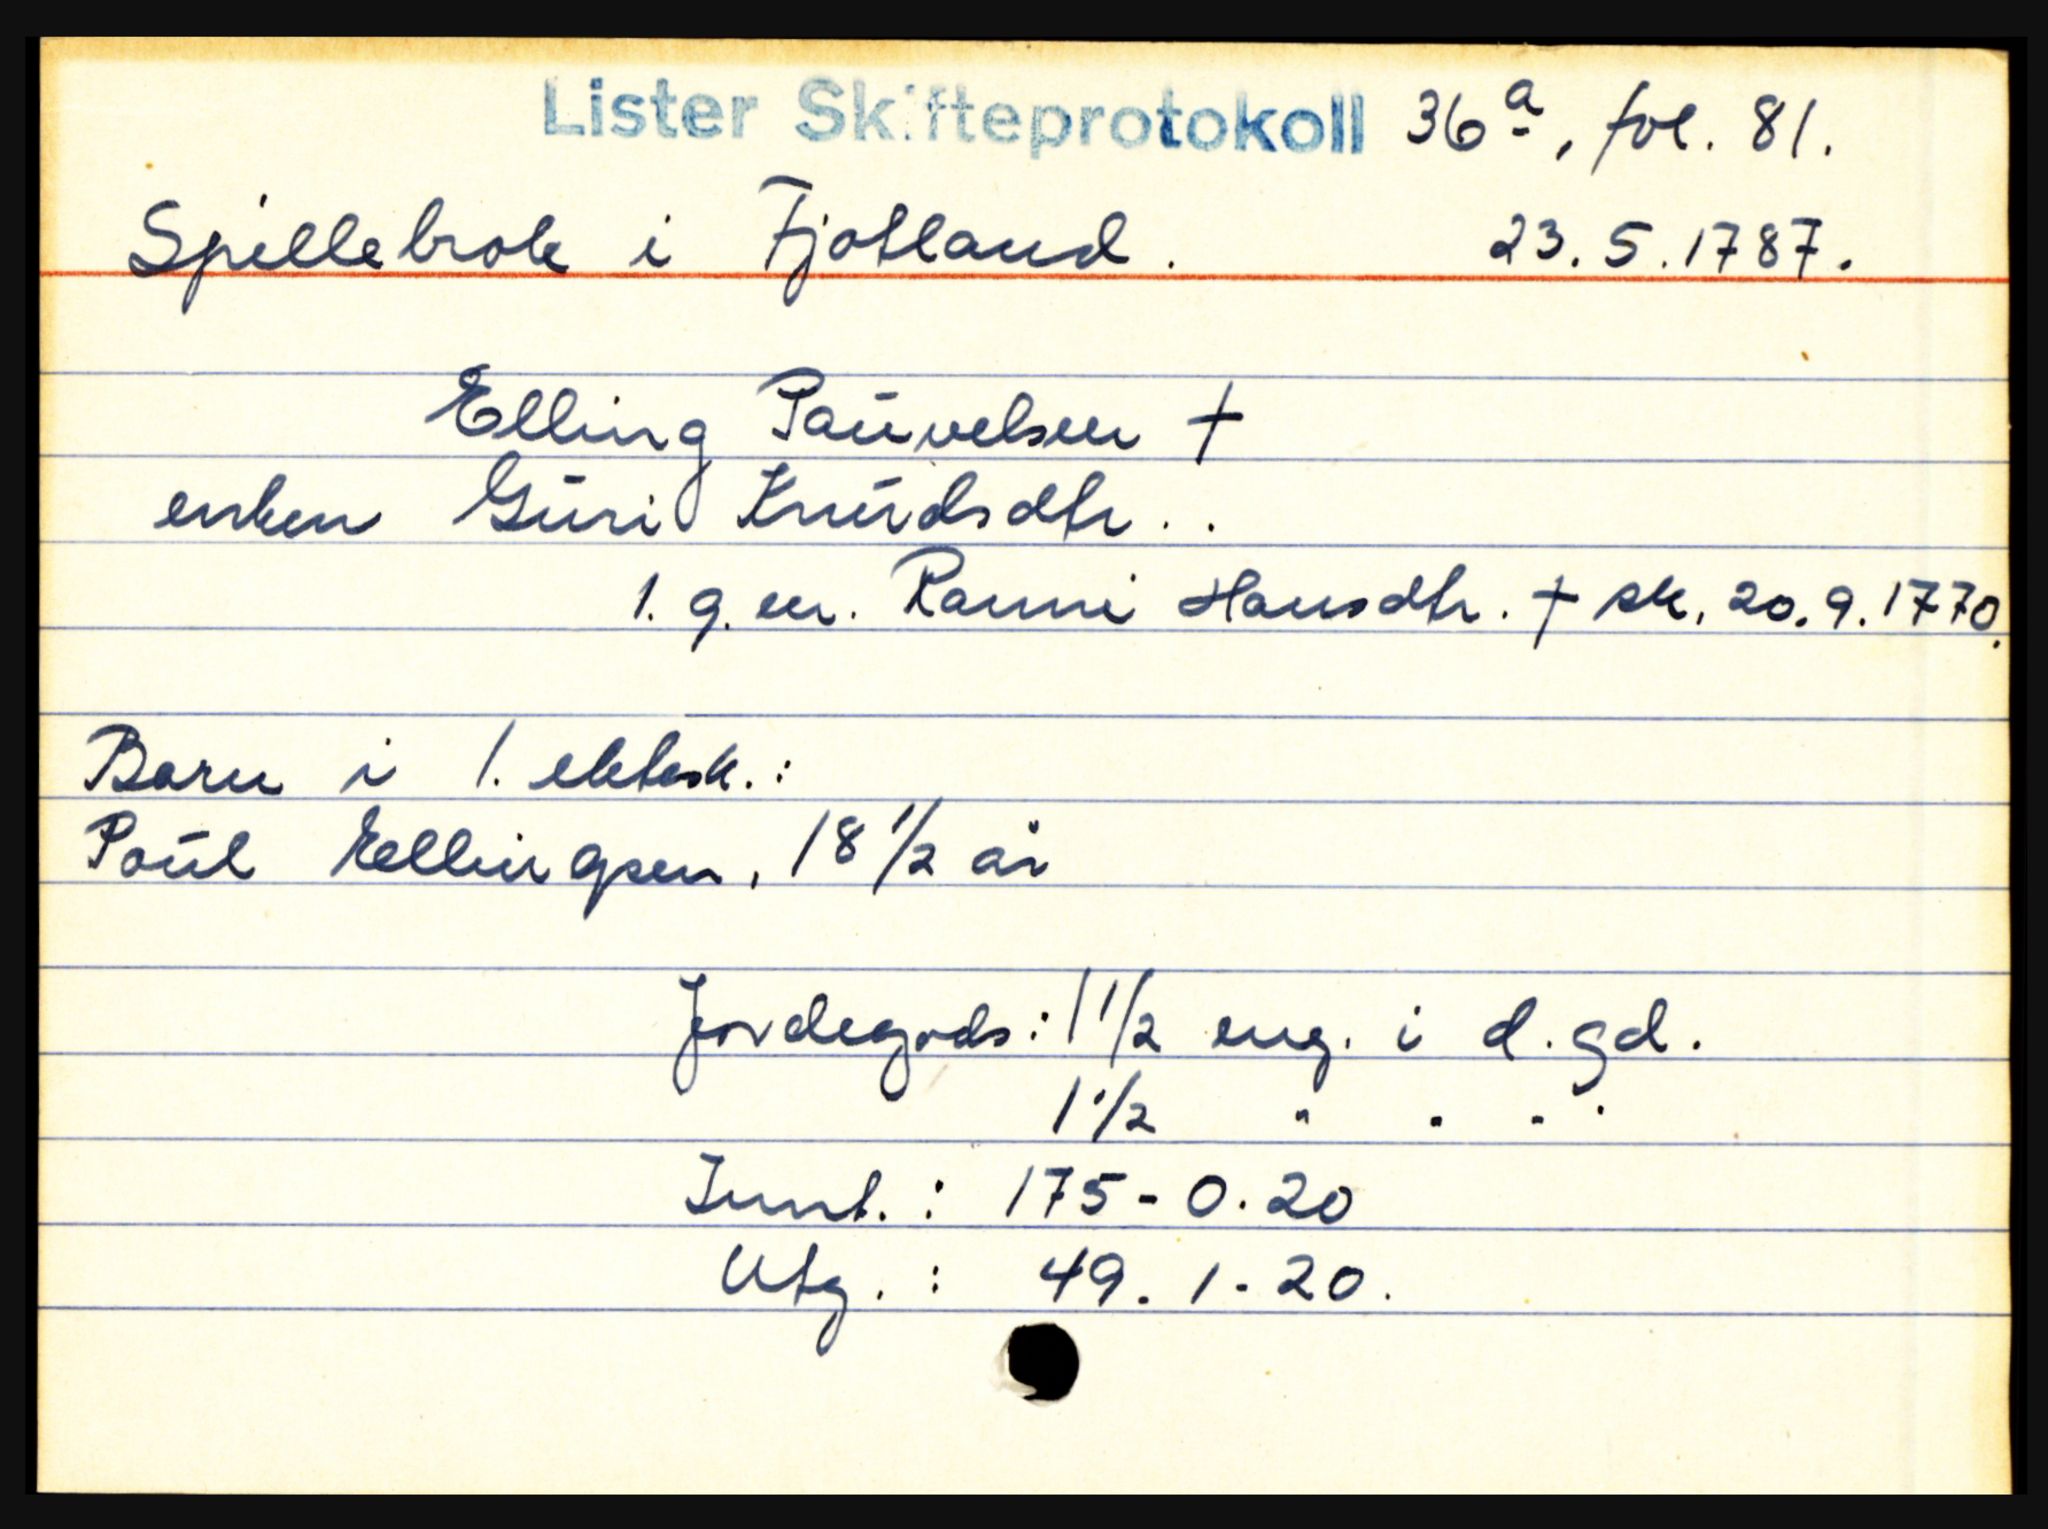 Lister Skifteprotokoll 36a, fol. 81.
Spillebrok i Fjotland. 23.5.1787.
Elling Pauvelsen †
enken Guri Knudsdtr..
1. g. m. Ranni Hansdtr. † sk. 20.9.1770.
Barn i 1. ektesk.:
Poul Ellingsen, 18 1/2 år
Jordegods: 1 1/2 eng. i d. gd.
1 1/2 " " " "
Innt.: 175-0.20
Utg.: 49.1-20.